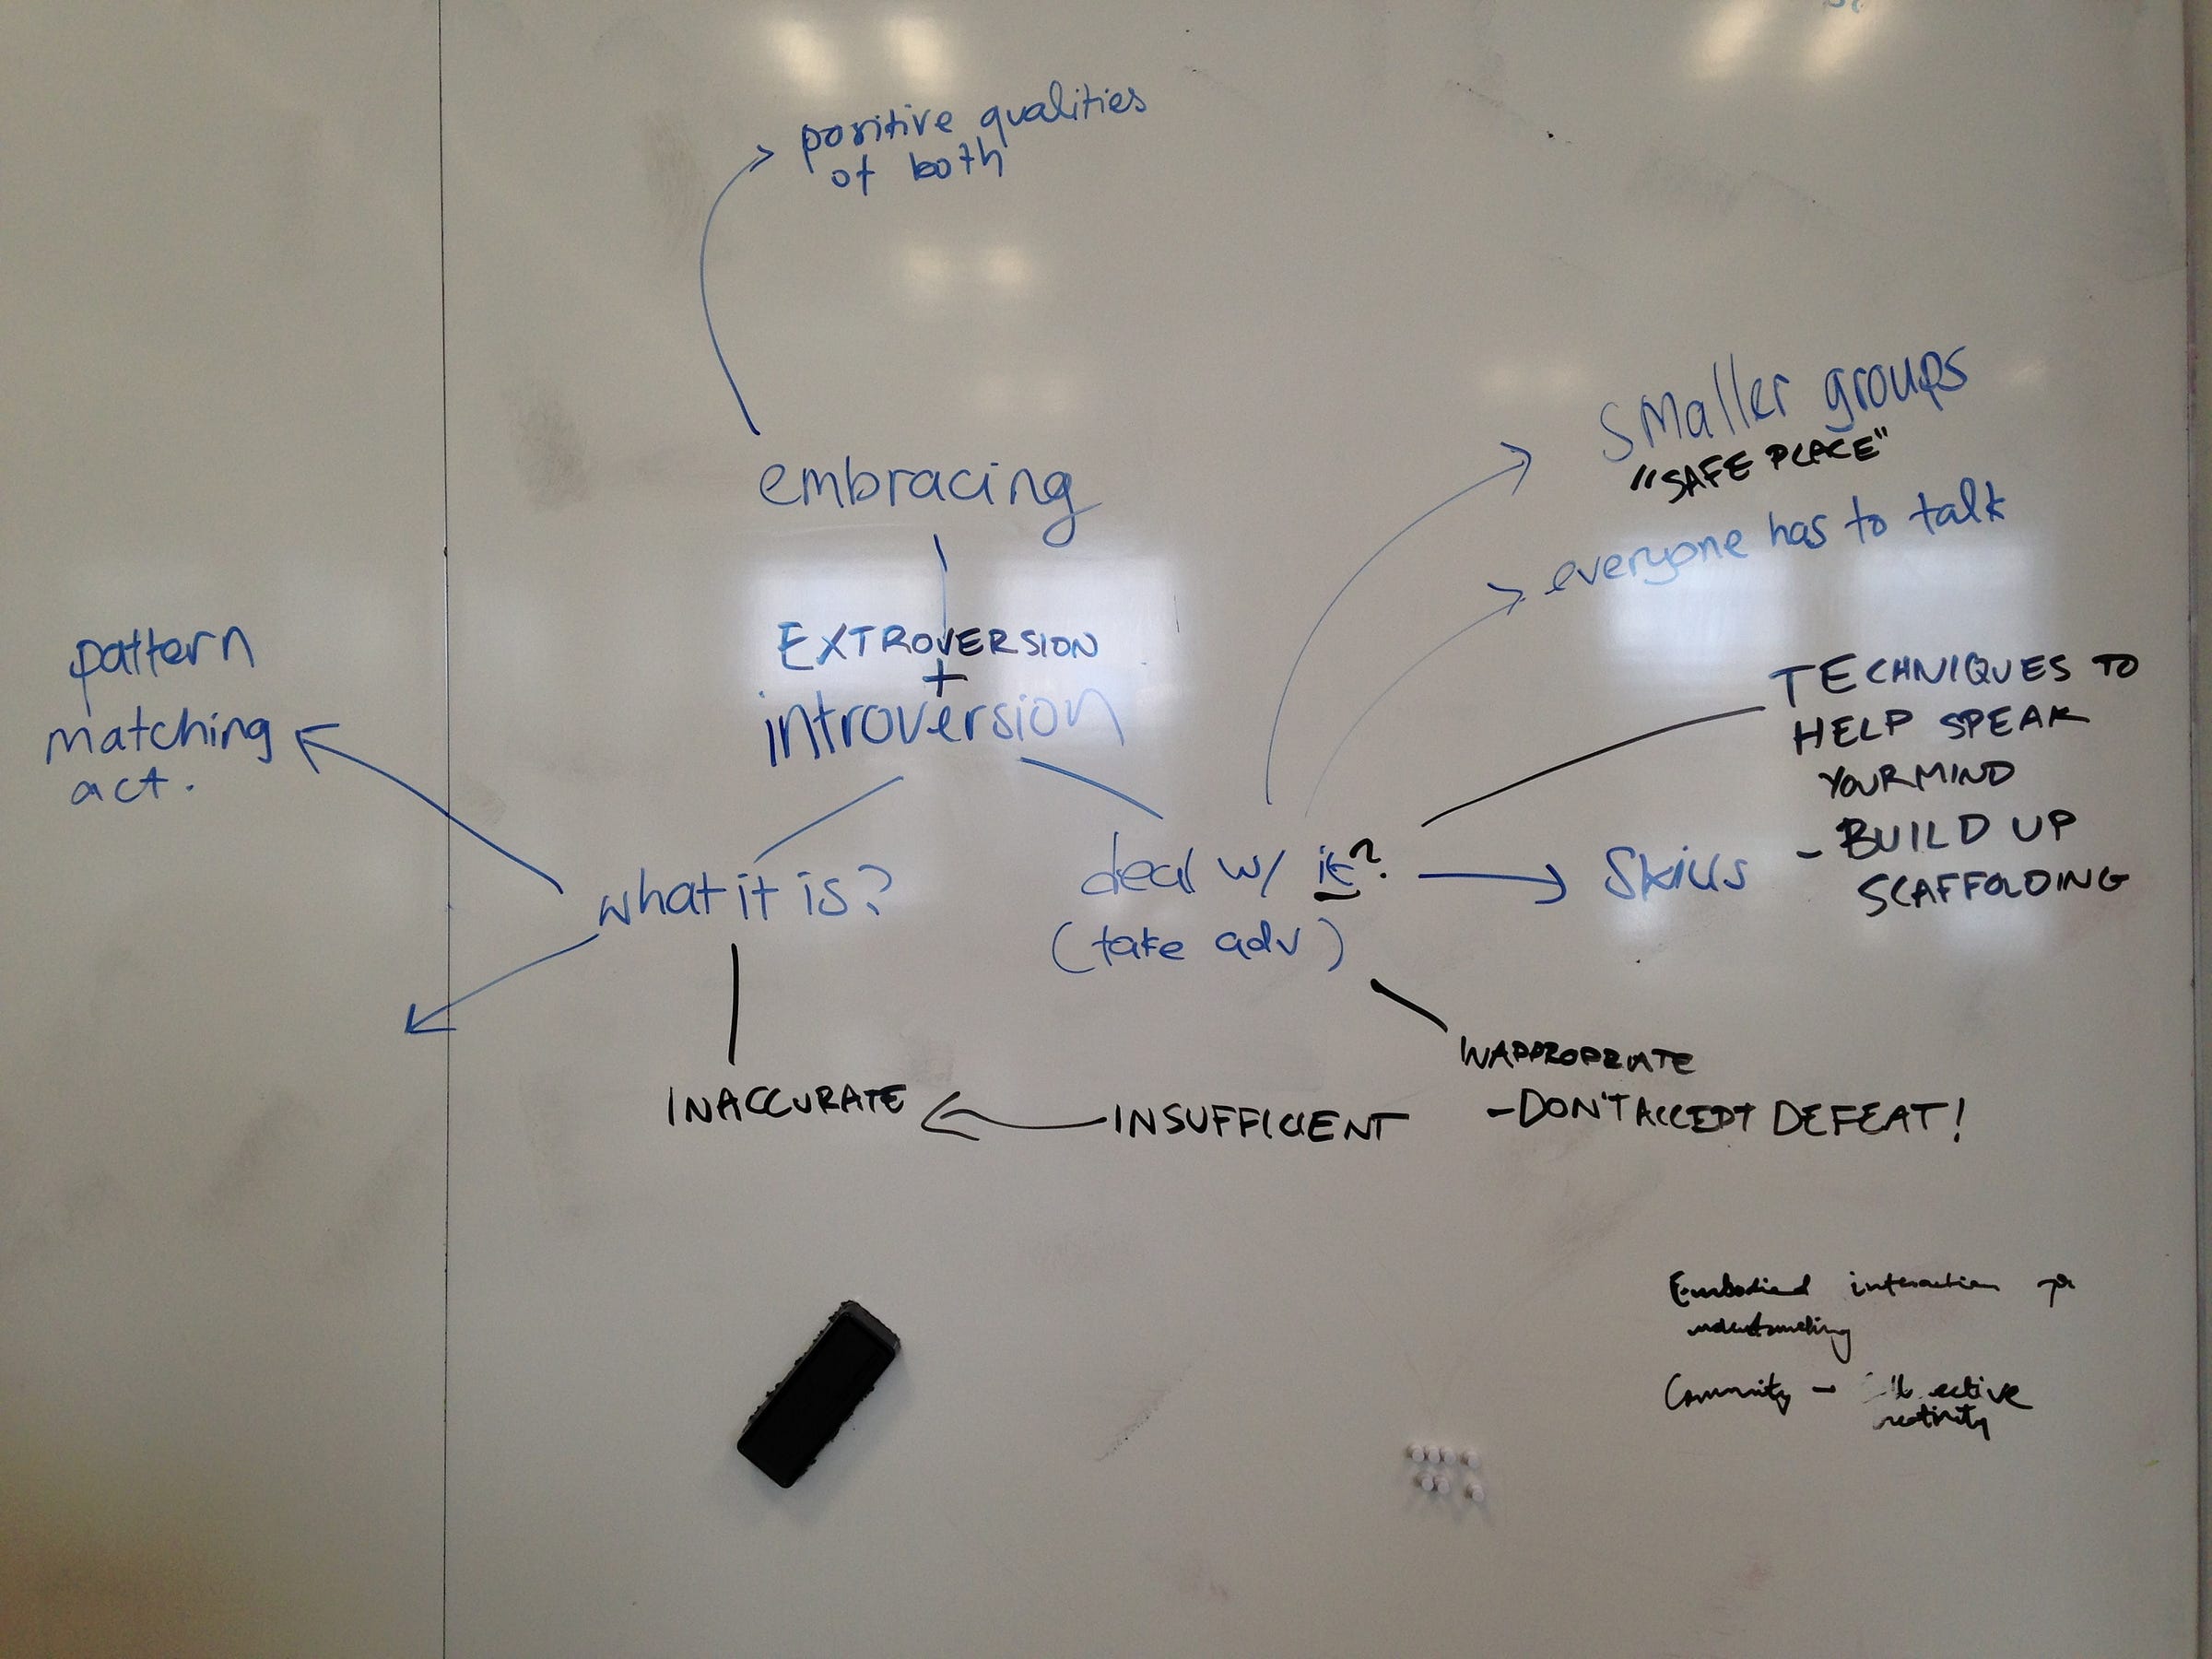 positive qualities
of both
embracing
EXTROVERSION
+
introversion
pattern
matching
act.
what it is?
deal w/ it?
(take adv)
smaller groups
"SAFE PLACE"
everyone has to talk
TECHNIQUES TO
HELP SPEAK
YOUR MIND
Skills - BUILD UP
SCAFFOLDING
INACCURATE
INSUFFICIENT
INAPPROPRIATE
- DON'T ACCEPT DEFEAT!
Embodied interaction
understanding
Community -